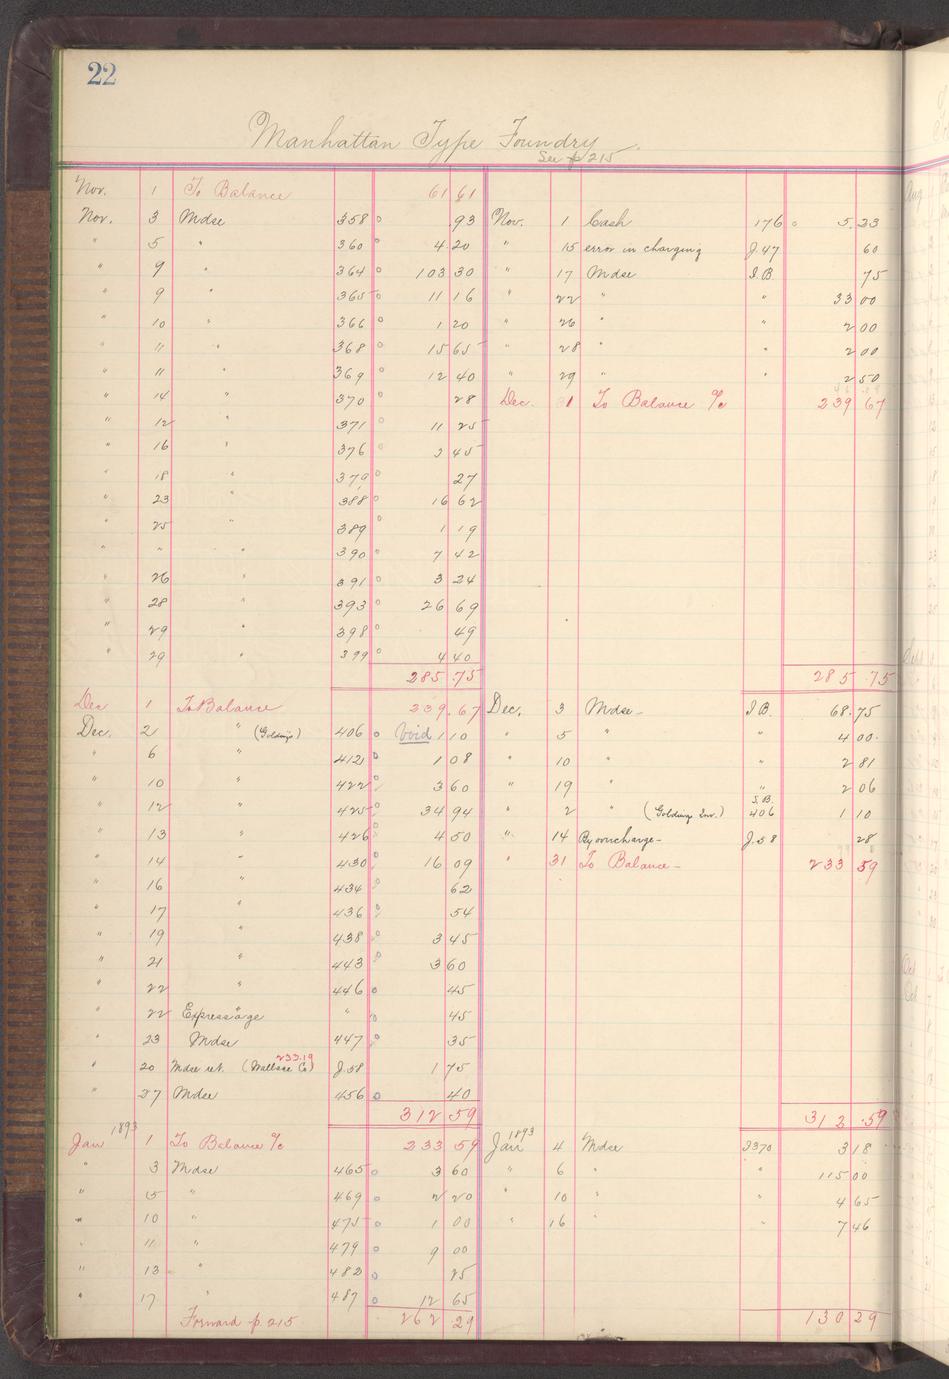 22
Manhattan Type Foundry
See p 215
Nov. 1 To Balance 61 61
Nov. 3 Mdse 358 .93
" 5 " 360 4 20
" 9 " 364 103 30
" 9 " 365 11 16
" 10 " 366 1 20
" 11 " 368 15 65
" 11 " 369 12 40
" 14 " 370 28
" 12 " 371 11 25
" 16 " 376 2 45
" 18 " 379 27
" 23 " 388 16 62
" 25 " 389 1 19
" " " 390 7 42
" 26 " 391 3 24
" 28 " 393 26 69
" 29 " 398 49
" 29 " 399 4 40
285.75
Nov. 1 Cash 176 5.23
" 15 error in charging J.47 60
" 17 Mdse I.B. 75
" 22 " " 33 00
" 26 " " 2 00
" 28 " " 2 00
" 29 " " 2 50
Dec. 1 To Balance % 239 67
285.75
Dec 1 To Balance 239.67
Dec. 2 " (Goldings) 406 Void 1 10
" 6 " 412 1 08
" 10 " 422 3 60
" 12 " 425 34 94
" 13 " 426 4 50
" 14 " 430 16 09
" 16 " 434 62
" 17 " 436 54
" 19 " 438 3 45
" 21 " 443 3 60
" 22 " 446 45
" 22 Expressage " 45
" 23 Mdse 447 35
233.19
" 20 Mdse ret. (Wallace Co) J.58 1 75
" 27 Mdse 456 40
312 59
Dec. 3 Mdse I B. 68.75
" 5 " " 4 00
" 10 " " 2 81
" 19 " " 2 06
S.B.
" 2 " (Golding Inv.) 406 1 10
" 14 By overcharge J.58 28
" 31 To Balance 233 59
312.59
1893
Jan 1 To Balance % 233 59
" 3 Mdse 465 3 60
" 5 " 469 2 20
" 10 " 475 1 00
" 11 " 479 9 00
" 13 " 482 25
" 17 " 487 12 65
Forward p. 215 262.29
1893
Jan 4 Mdse I370 3 18
" 6 " " 115 00
" 10 " " 4 65
" 16 " " 7 46
130 29